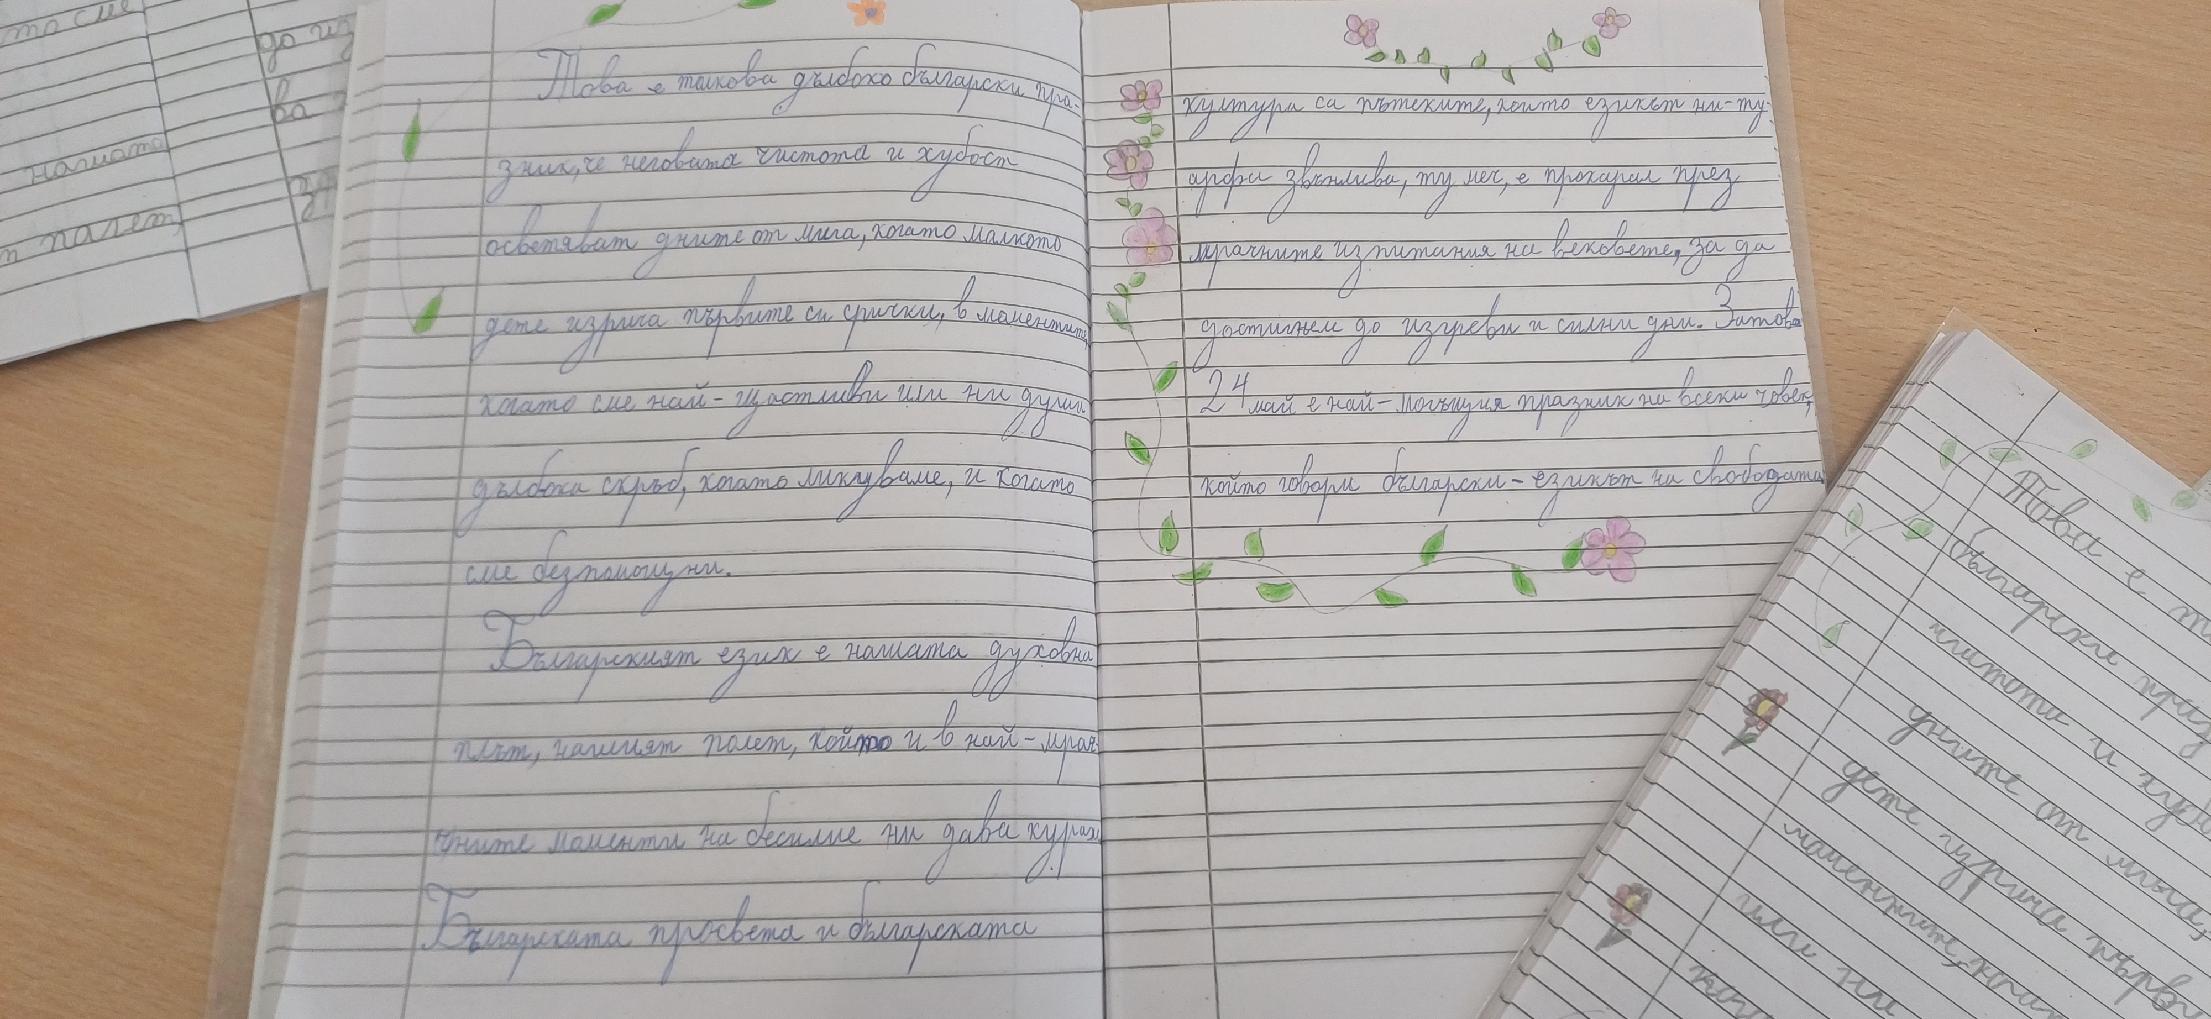 то сме
нашата
н полет,
до из
ва
Това е толкова дълбоко български пра-
зник, че неговата чистота и хубост
осветяват дните от мига, когато малкото
дете изрича първите си срички, в моментите,
когато сме най-щастливи или ни души
дълбока скръб, когато ликуваме, и когато
сме безпомощни.
Българският език е нашата духовна
плът, нашият полет, който и в най-мрач-
чните моменти на бесилие ни дава кураж.
Българската просвета и българската
култура са пътеките, които езикът ни-ту
арфа звънлива, ту меч, е прокарал през
мрачните изпитания на вековете, за да
достигнем до изгреви и силни дни. Затова
24 май е най-могъщия празник на всеки човек,
който говори български-езикът на свободата
Това е т
български праз
чистота и хуб
дните от мига,
дете изрича първи
моментите, кога
или ни
ког